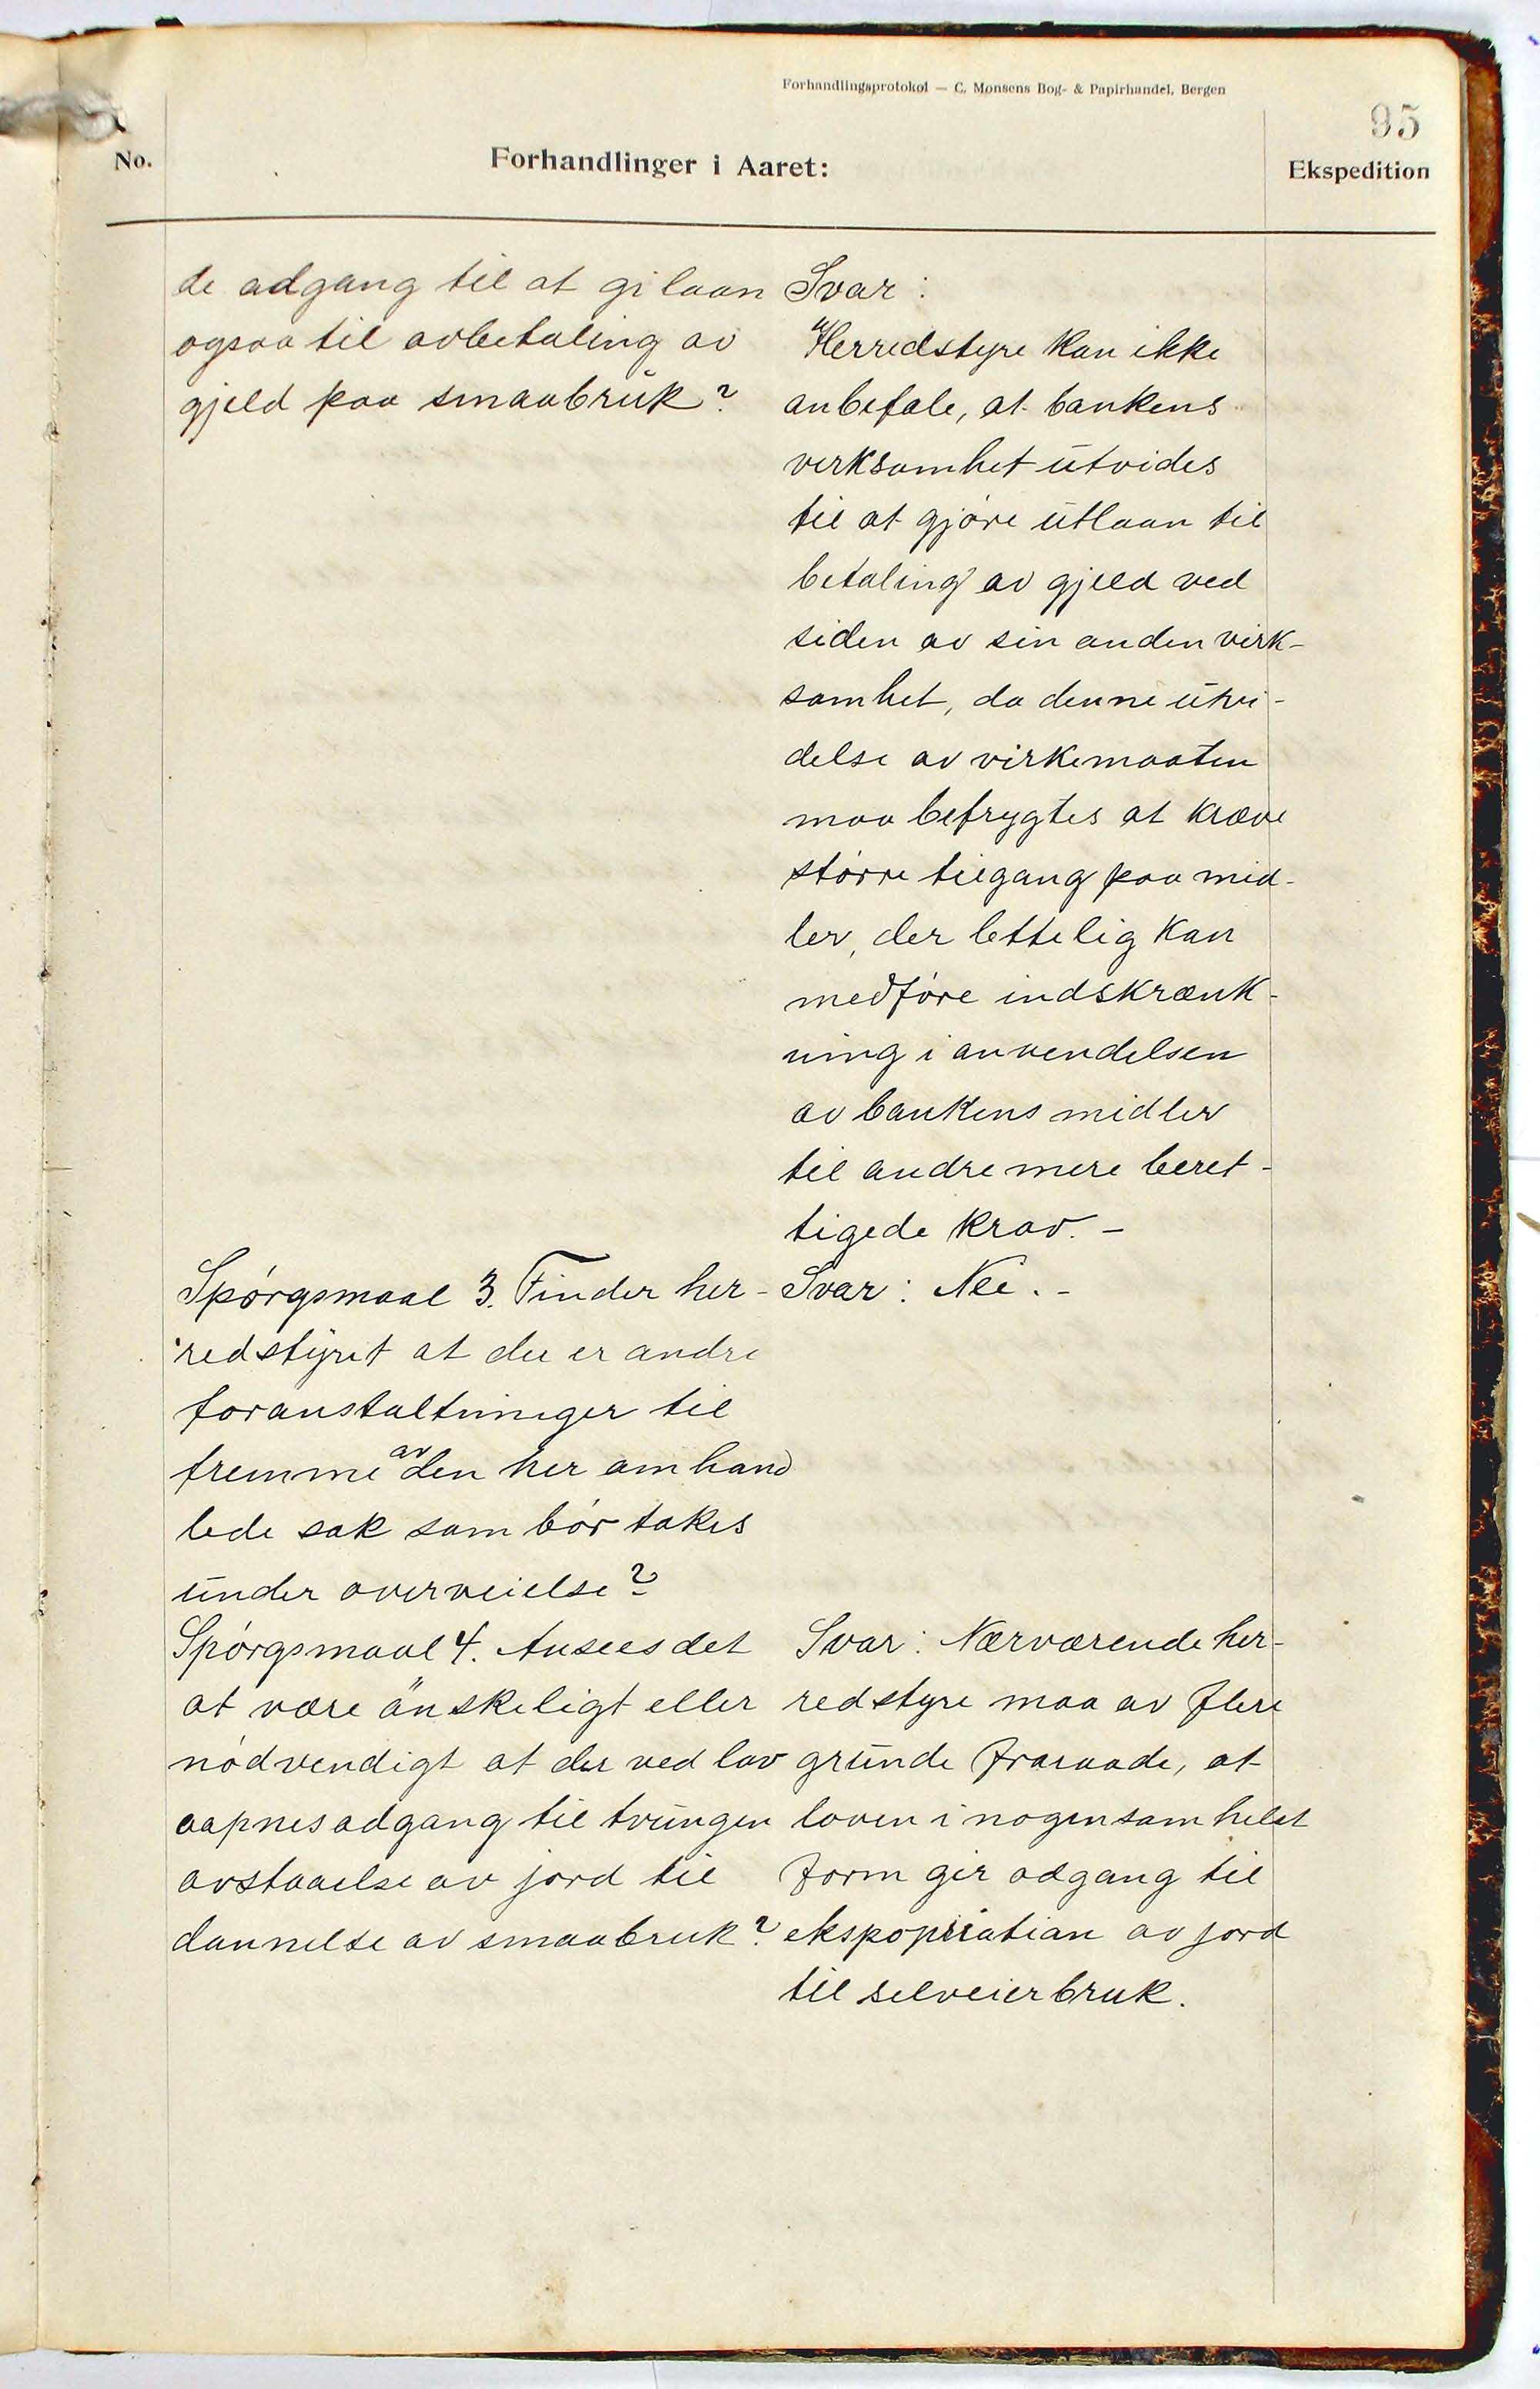 Forhandlingsprotokol — C. Monsens Bog- & Papirhandel, Bergen
95
No.
Forhandlinger i Aaret:
Ekspedition
de adgang til at gi laan
ogsaa til avbetaling av
gjeld paa smaabruk?
Svar:
Herredstyre kan ikke
anbefale, at bankens
verksomhet utvides
til at gjöre utlaan til
betaling av gjeld ved
siden av sin anden virk-
somhet, da denne utvi-
delse av virkemaaten
maa befrygtes at kræve
större tilgang paa mid-
ler, der lettelig kan
medföre indskrænk-
ning i anvendelsen
av bankens midler
til andre mere beret-
tigede krav. -
Spörgsmaal 3. Finder her-
redstyret at der er andre
foranstaltninger til
fremme av den her omhand
lede sak som bör takes
under overveielse?
Svar: Nei. -
Spörgsmaal 4. Ansees det
at være önskeligt eller
nödvendigt at der ved lov
aapnes adgang til tvungen
avstaaelse av jord til
dannelse av smaabruk?
Svar: Nærværende her-
redstyre maa av flere
grunde fraraade, at
loven i nogensomhelst
form gir adgang til
ekspopriation av jord
til selveierbruk.